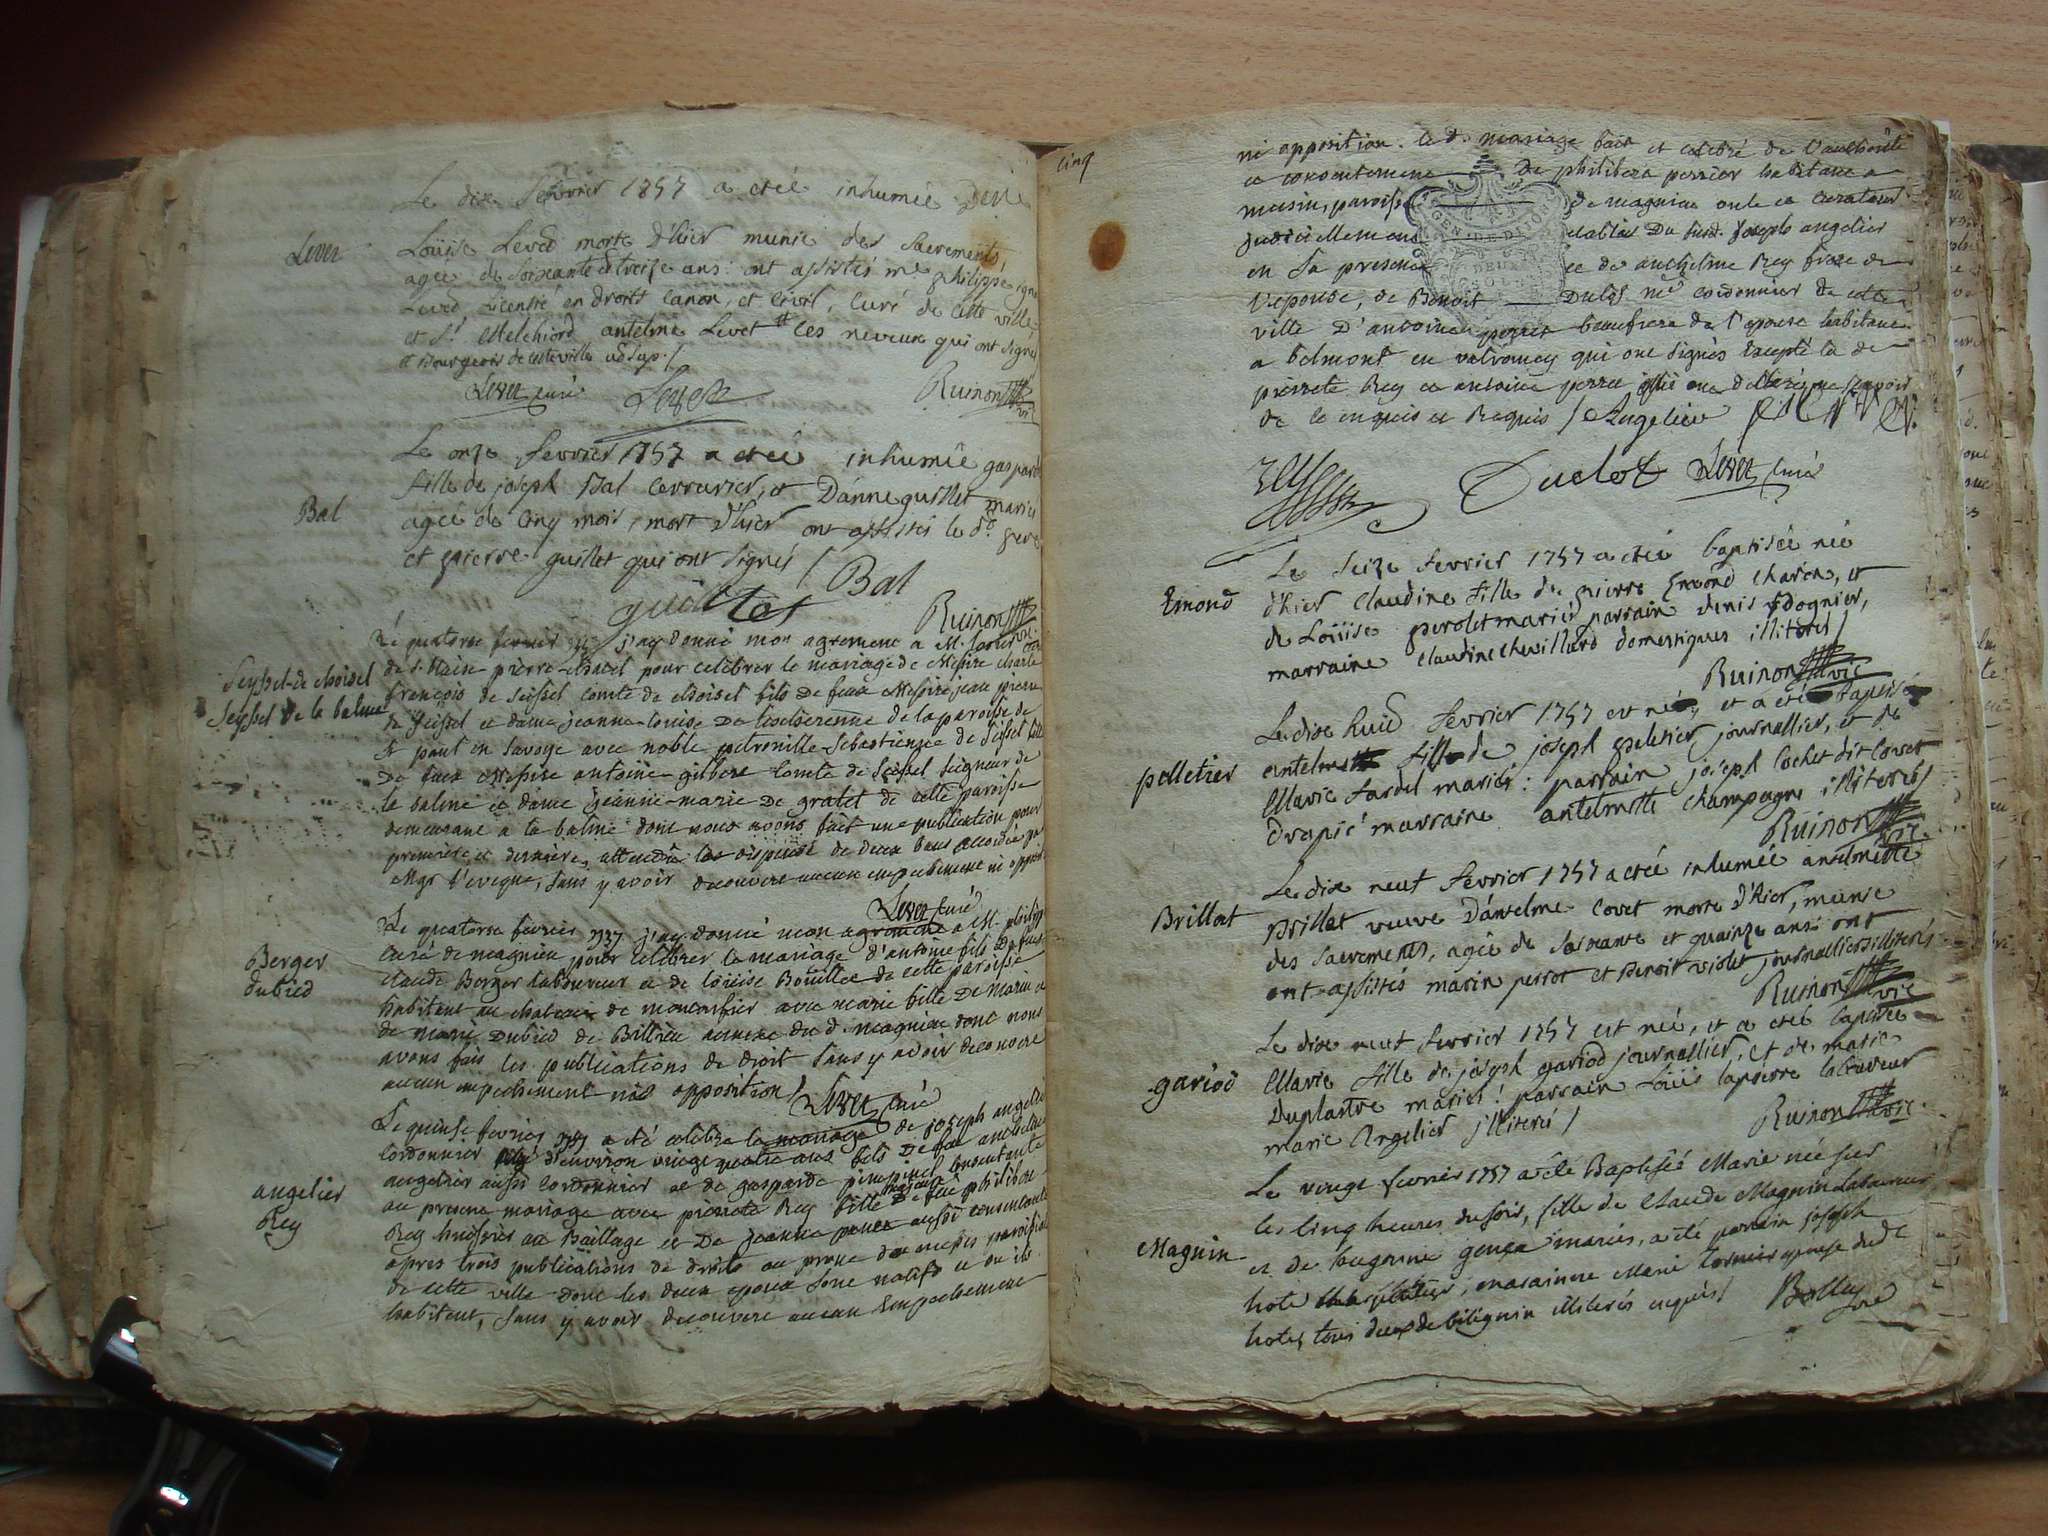 Le dix fevrier 1757 a eteé inhumeé Delle
Levet
Loüise Leved morte d'hier munie des sacrements,
agee de soixante et treize ans: ont assistés me philippe
Leved, licentié en droits canon, et civil, curé de cette ville
et Sr. Melchiord antelme Levet # les neveux qui ont signés
# Bourgeois de cette ville
Levet curé Levet Ruinon vic
Le onze fevrier 1757 a eteé inhumeé gasparde
Bal
fille de joseph Bal serrurier, et D'anne guillet mariés
agee de cinq mois, mort d'hier ont assistés le d. pere
et pierre guillet qui ont signés / Bal
guillet Ruinon vic
Le quatorse fevrier j'ay donné mon agrement a M.
Seyssel de choisel
de pierre chatel pour celebrer le mariage de Messire charle
Seyssel de la balme
françois de Seissel comte de choisel fils de feux Messire jean pierre
de Seissel et dame jeanne-louise de de la paroisse de
St paul en Savoye avec noble petronille Sebastienne de Seissel fille
De feux Messire antoine gilbert comte de Seissel Seigneur de
la balme et dame jeanne-marie de gratet de cette paroisse
demeurant a la balme dont nous avons fait une publication pour
premiere et derniere, attendu les dispense de deux bans accordée par
Mgr l'eveque, sans y avoir decouvert aucun empechement ni opposit
Levet curé
Le quatorse fevrier 1757 j'ay donné mon agrement a M. philipe
Berger
curé de magnieu pour celebrer le mariage d'antoine fils de feu
dubied
claude Berger laboureur et de loüise Bouillet de cette paroisse
habitent au chateau de avec marie fille De Marin et
de marie Dubied de Billieu annexe du d. magnieu dont nous
avons fait les publications de droit sans y avoir decouvert
aucun empechement nis opposition / Levet curé
Le quinse fevrier 1757 a eté celebre le mariage de joseph angelier
cordonnier agé d'environ vingt quatre ans fils De feu anthelme
angelier
angelier aussi cordonnier et de gasparde consentante
Rey
au present mariage avec pierrete Rey fille De feu philibert
Rey huissier au Baillage et De jeanne perret aussi consentante
apres trois publications de droits au prone des messes paroissiale
de cette ville dont les deux epoux sont natifs et ou ils
habitent, sans y avoir decouvert aucun Empechement
cinq
ni opposition. le d. mariage fait et celebré de l'authorité
et consentement De philibert perrier habitant a
musin, paroisse de magnieu oncle et curateur
judiciellement etablis Du susd. joseph angelier
en sa presence et de anthelme Rey frere de
l'epouse, de Benoit Duclos me cordonnier de cette
ville D'antoine perret beaufrere de l'epouse habitant
a belmont en valromey qui ont signés Excepté la de
pierrete Rey et antoine perret qui ont declaré ne sçavoir
de ce enquis et Requis / Angelier
Rey Duclot Levet curé
Le seize fevrier 1757 a eteé baptiseé neé
Emond
d'hier claudine fille de pierre Emond charon, et
de Loüise perolet mariés parrain denis
marraine claudine chevillard domestiques illiterés /
Ruinon vic
Le dix huit fevrier 1757 est neé, et a eteé baptisé
antelmette fille de joseph pelletier journallier, et de
pelletier
Marie tardel mariés: parrain joseph Cochet dit Covet
drapié marraine antelmette champagne illiterés /
Ruinon vic
Le dix neuf fevrier 1757 a eteé inhumeé antelmette
Brillat
Brillat veuve D'antelme Covet morte d'hier, munie
des sacrements, agée de soixante et quainze ans ont
ont assistés marin perrot et benoit violet journalliers illiterés
Ruinon vic
Le dix neuf fevrier 1757 est neé, et a eteé baptisée
gariod
Marie fille de joseph gariod journallier, et de marie
Duplastre mariés: parrain Loüis lapierre laboureur
marie Angelier illiteré / Ruinon vic
Le vingt fevrier 1757 a été Baptisée Marie née sur
les cinq heures du soir, fille de Claude Magnin Laboureur
Magnin
et de hugonne mariés, a été parrain joseph
hote, maraine Marie epouse dud.
hote, tous deux de biliegnin illiterés enquis /